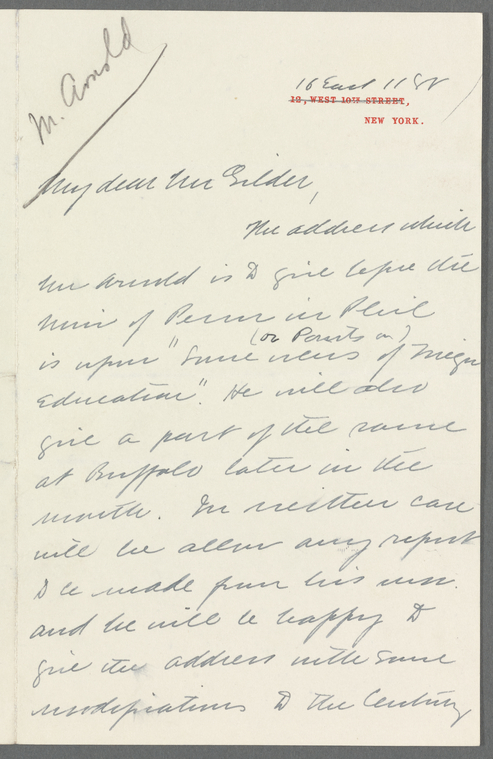 M. Arnold
16 East 11 St
12, WEST 10TH STREET,
NEW YORK.
My dear Mr Gilder,
The address which
Mr Arnold is to give before the
Univ of Penn in Phil
(or Points on)
is upon "Some views of
Education". He will also
give a part of the same
at Buffalo later in the
month. In neither case
will he allow any report
to be made from his mss.
and he will be happy to
give the address with some
modifications to the Century